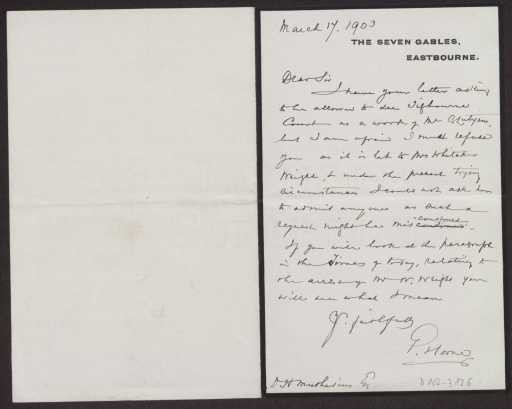 March 17, 1903
THE SEVEN GABLES,
EASTBOURNE.
Dear Sir
I have your letter asking
to be allowed to see Tigbourne
Court as a work of Mr Lutyens,
but I am afraid I must refuse
you as it is let to Mrs Whitaker
Wright, & under the present trying
circumstances I could not ask her
to admit anyone as such a
request might be misconstrued.
If you will look at the paragraph
in the Times of today, relating to
the arrest of Mr W. Wright you
will see what I mean
Yrs faithfully
Horne
D H Muthesius Esq